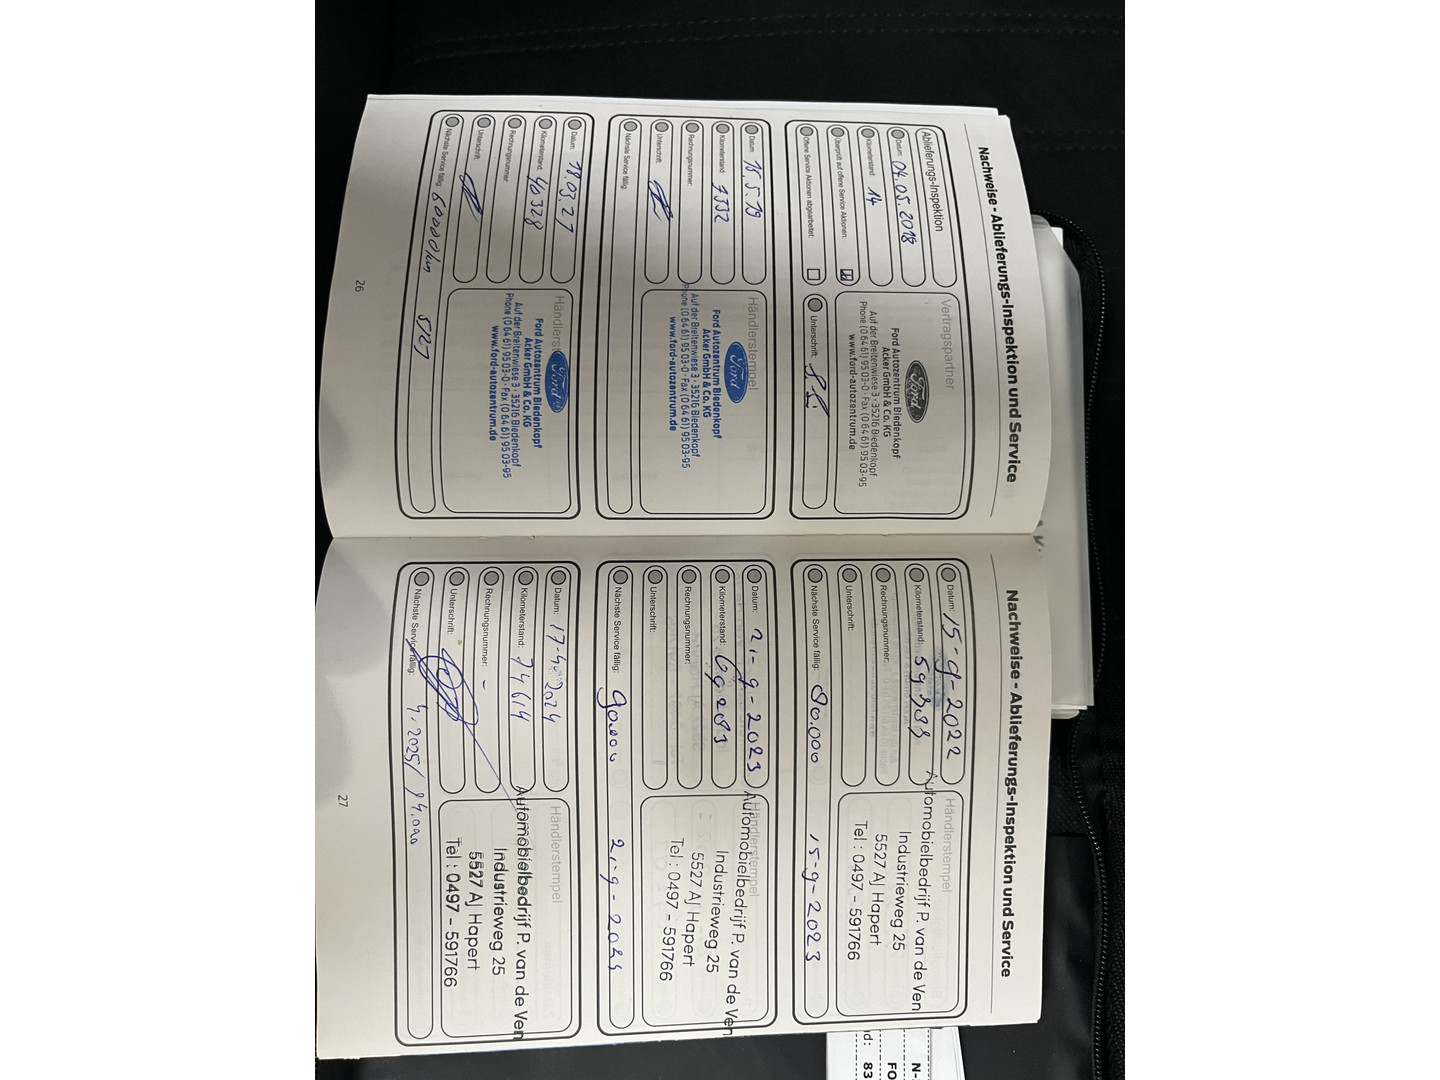 Nachweise - Ablieferungs-Inspektion und Service
Ablieferungs-Inspektion
Datum: 04.05.2018
Kilometerstand: 14
Überprüft auf offene Service Aktionen:
Offene Service Aktionen abgearbeitet:
Vertragspartner
Ford
Ford Autozentrum Biedenkopf
Acker GmbH & Co. KG
Auf der Breitenwiese 3 · 35216 Biedenkopf
Phone (0 64 61) 95 03-0 · Fax (0 64 61) 95 03-95
www.ford-autozentrum.de
Unterschrift:
Datum: 15.5.19
Kilometerstand: 7332
Rechnungsnummer:
Unterschrift:
Nächste Service fällig:
Händlerstempel
Ford
Ford Autozentrum Biedenkopf
Acker GmbH & Co. KG
Auf der Breitenwiese 3 · 35216 Biedenkopf
Phone (0 64 61) 95 03-0 · Fax (0 64 61) 95 03-95
www.ford-autozentrum.de
Datum: 18.03.21
Kilometerstand: 40328
Rechnungsnummer:
Unterschrift:
Nächste Service fällig: 60000km
Ford
Ford Autozentrum Biedenkopf
Acker GmbH & Co. KG
Auf der Breitenwiese 3 · 35216 Biedenkopf
Phone (0 64 61) 95 03-0 · Fax (0 64 61) 95 03-95
www.ford-autozentrum.de
26
Nachweise - Ablieferungs-Inspektion und Service
Datum: 15-9-2022
Kilometerstand:
Rechnungsnummer:
Unterschrift:
Nächste Service fällig: 80.000 15-9-2023
Händlerstempel
Automobielbedrijf P. van de Ven
Industrieweg 25
5527 AJ Hapert
Tel : 0497 - 591766
Datum: 21-9-2023
Kilometerstand:
Rechnungsnummer:
Unterschrift:
Nächste Service fällig: 90.000 21-9-2024
Händlerstempel
Automobielbedrijf P. van de Ven
Industrieweg 25
5527 AJ Hapert
Tel : 0497 - 591766
Datum: 2024
Kilometerstand: 74614
Rechnungsnummer: -
Unterschrift:
Nächste Service fällig:
Händlerstempel
Automobielbedrijf P. van de Ven
Industrieweg 25
5527 AJ Hapert
Tel : 0497 - 591766
27
FO
83